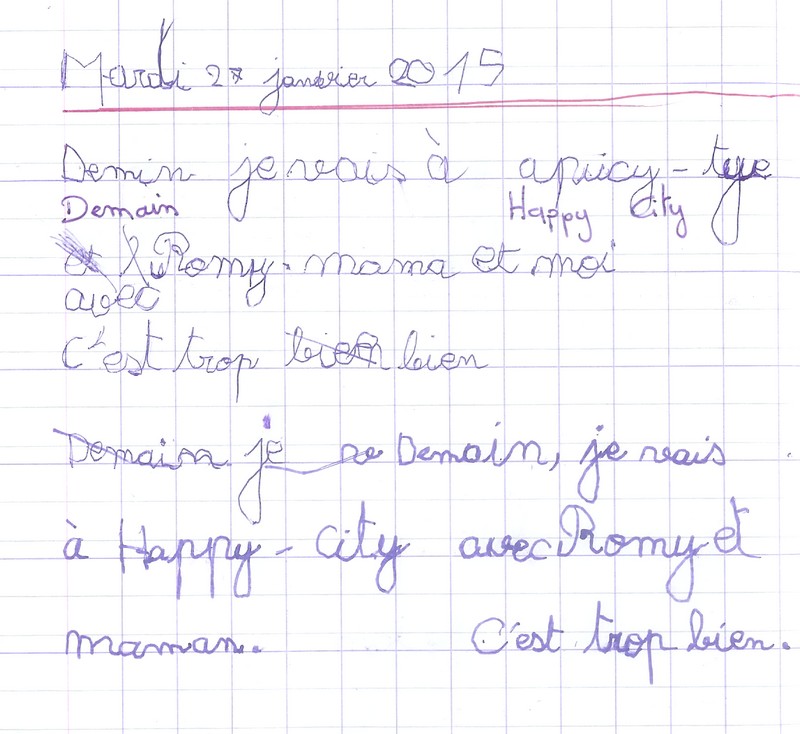 Mardi 27 janvier 2015
Demin je vais à apuicy - tye
Demain Happy City
et Romy. mama et moi
avec
C'est trop bien bien
Demain je Demain, je vais
à Happy - City avec Romy et
maman. C'est trop bien.